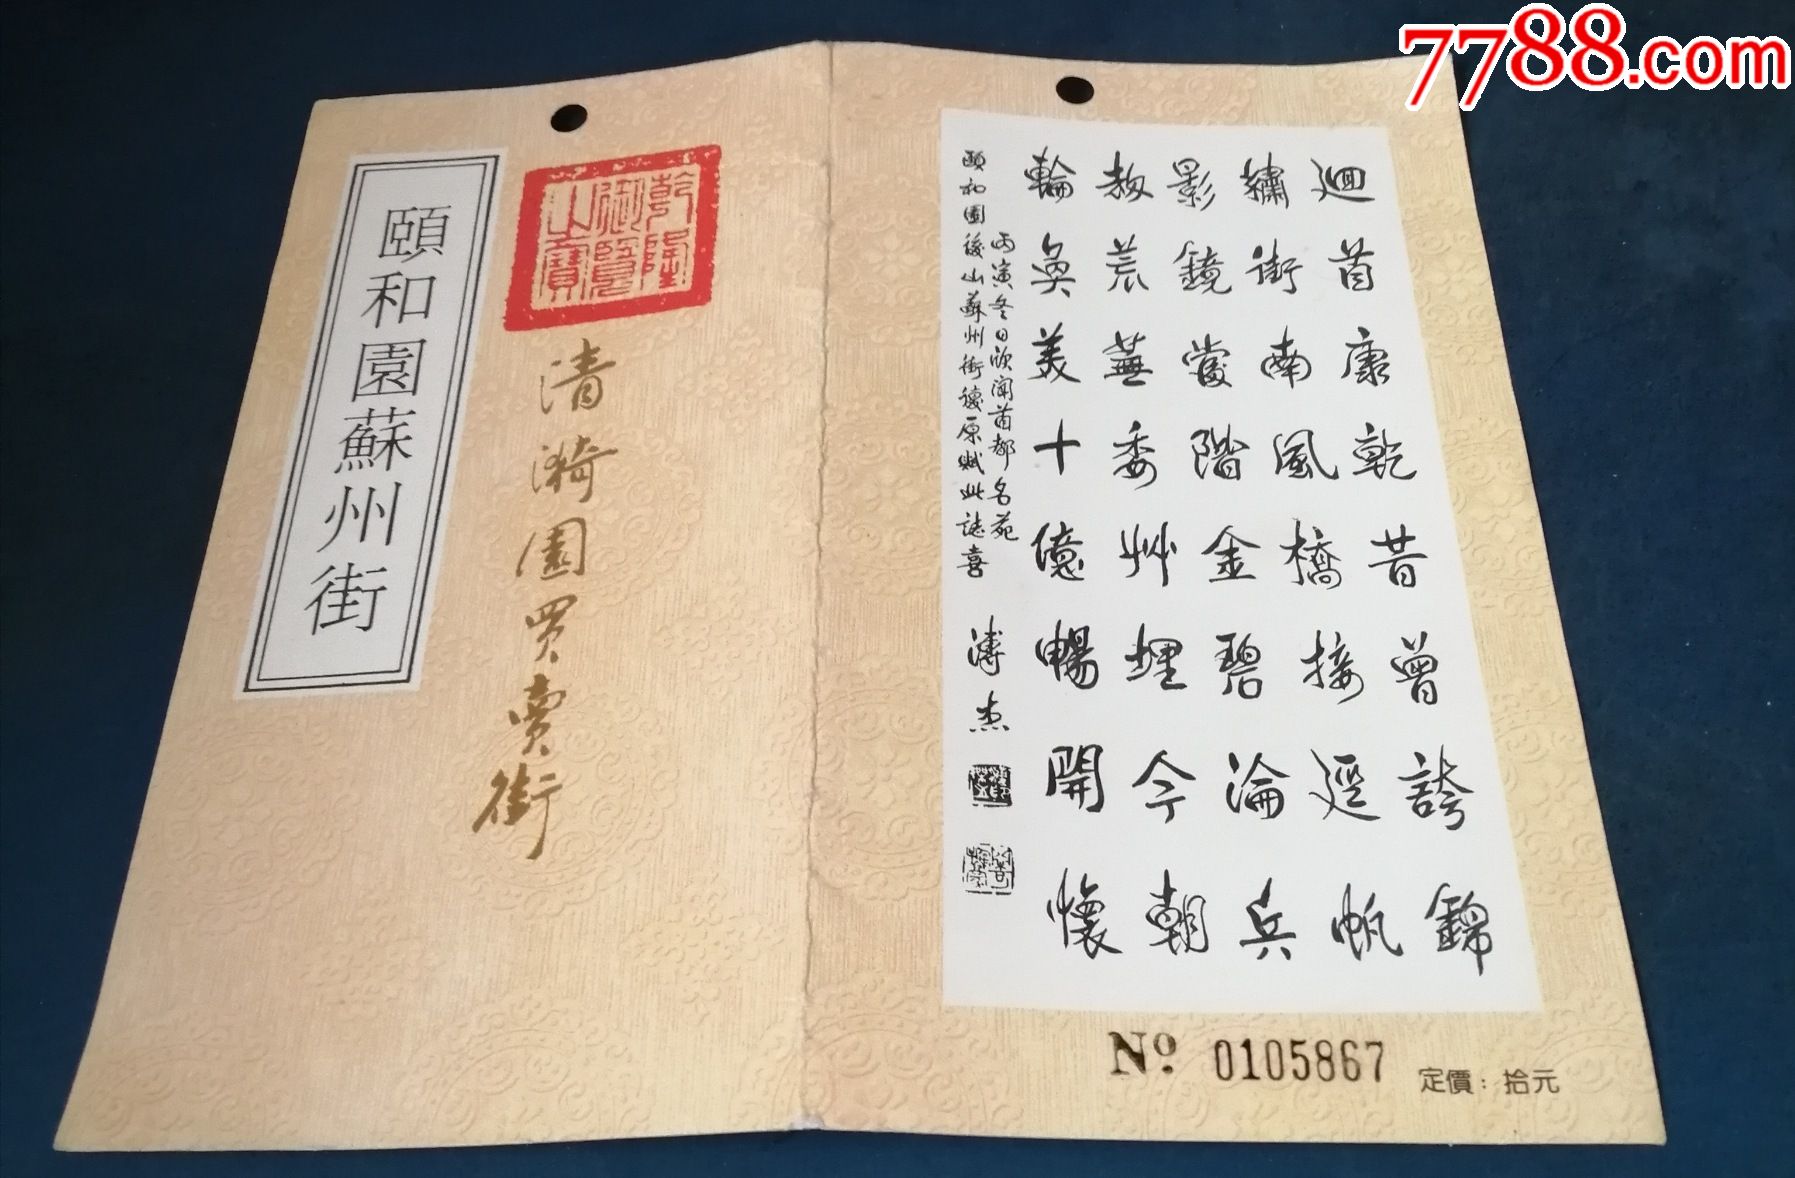 7788.com
頤和園蘇州街
乾隆
御覽
之寶
清漪園買賣街
迴首康乾昔曾誇錦
繡街南風橋接逕帆
影鏡當階金碧淪兵
教荒蕪委艸埋今朝
輪奐美十億暢開懷
丙寅冬日欣聞首都名苑
頤和園後山蘇州街復原賦此誌喜
溥杰
No 0105867
定價：拾元